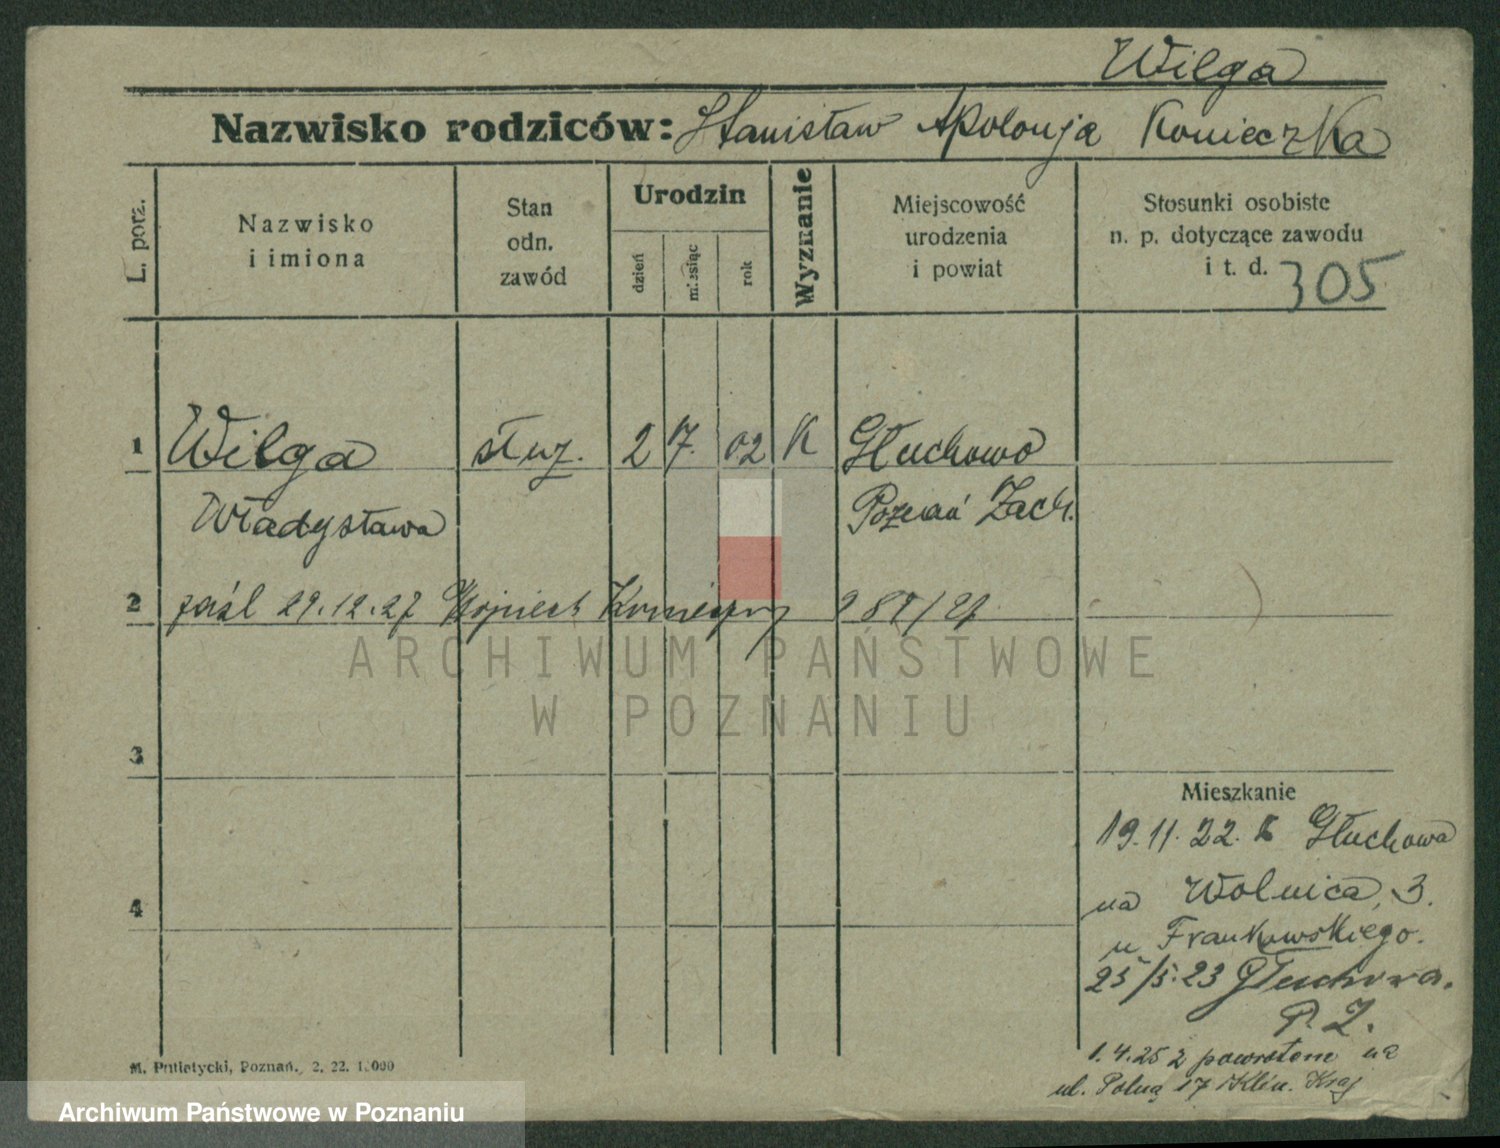 Wilga
Nazwisko rodziców: Stanisław Apolonja Konieczka
L. porz.
Nazwisko
i imiona
Stan
odn.
zawód
Urodzin
dzień
miesiąc
rok
Wyznanie
Miejscowość
urodzenia
i powiat
Stosunki osobiste
n. p. dotyczące zawodu
i t. d. 305
1 Wilga służ. 2 7. 02 K Głuchowo
Władysława Poznań Zach.
2 zaśl 29.12.27 Wojciech Konieczny 987/27
ARCHIWUM PAŃSTWOWE
W POZNANIU
3
Mieszkanie
19.11.22. z Głuchowa
na Wolnica, 3.
4
u Frankowskiego.
25/5.23 Głuchowa.
P. Z.
1.4.25 z powrotem na
ul. Polną 17
M. Putiatycki, Poznań. 2. 22. 1.000
Archiwum Państwowe w Poznaniu